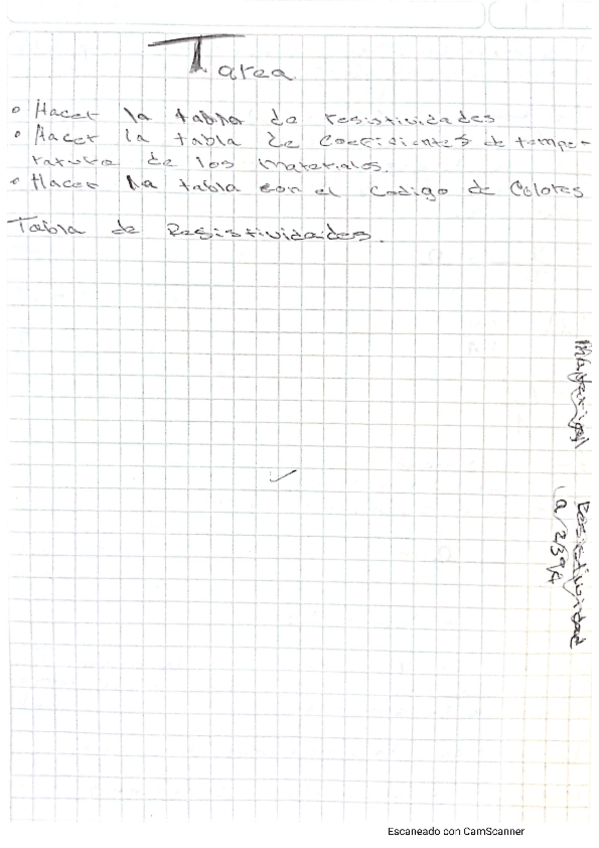 Tarea
• Hacer la tabla de resistividades
• Hacer la tabla de coeficientes de tempe-
ratura de los materiales.
• Hacer la tabla con el codigo de Colores
Tabla de Resistividades.
Material
Resistividad
a 23°
Escaneado con CamScanner